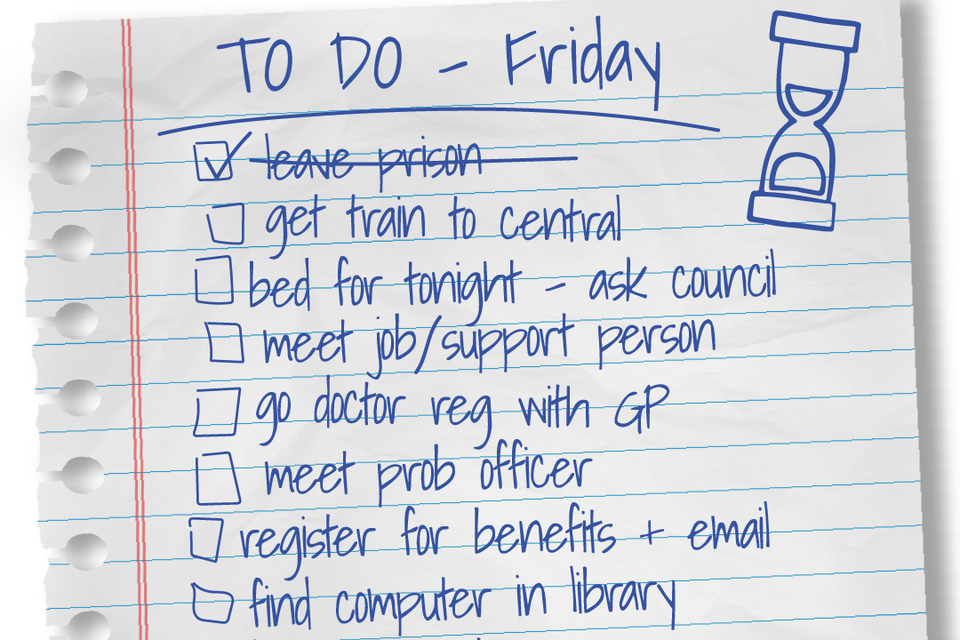 TO DO - Friday
leave prison
get train to central
bed for tonight - ask council
meet job/support person
go doctor reg with GP
meet prob officer
register for benefits + email
find computer in library